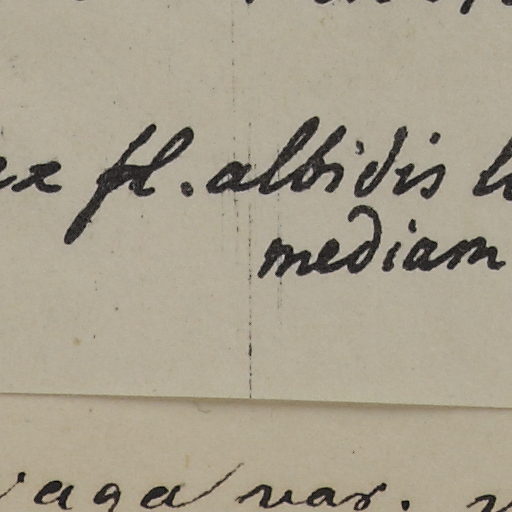 ex fl. albidis
mediam
vaga var.